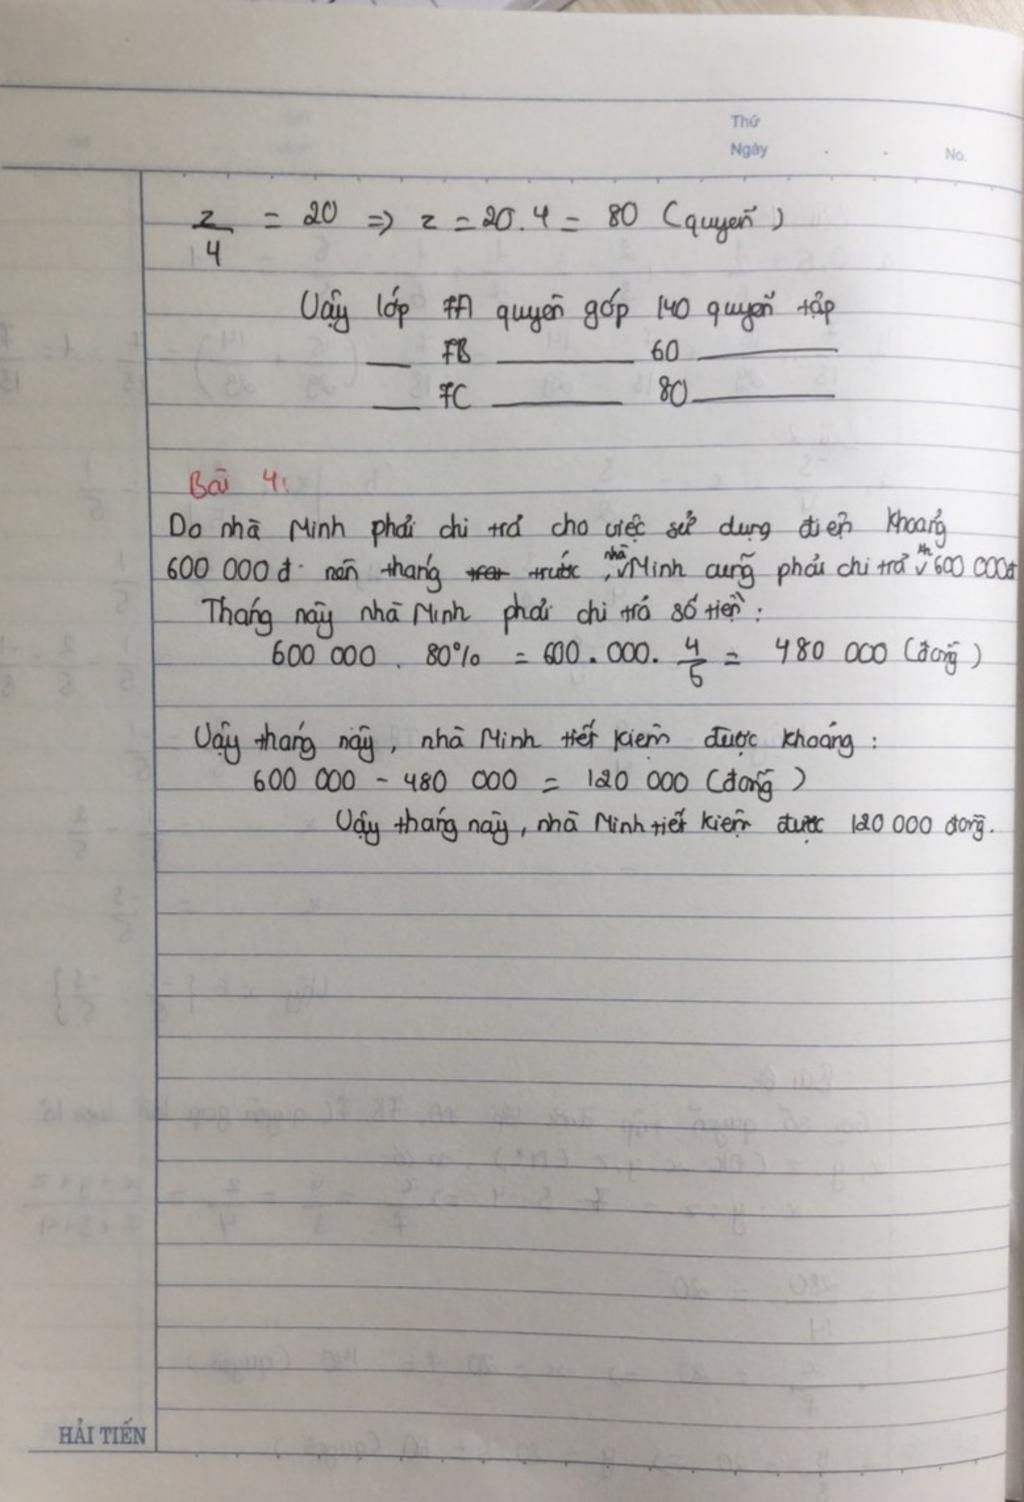 Thứ
Ngày . . No.
z/4 = 20 => z = 20.4 = 80 (quyển)
Vậy lớp 7A quyên góp 140 quyển tập
__ 7B ______ 60 ______
__ 7C ______ 80 ______
Bài 4:
Do nhà Minh phải chi trả cho việc sử dụng điện khoảng
600 000 đ. nên tháng trước, nhà Minh cũng phải chi trả 600 000đ
Tháng này nhà Minh phải chi trả số tiền:
600 000 . 80% = 600.000. 4/5 = 480 000 (đồng)
Vậy tháng này, nhà Minh tiết kiệm được khoảng:
600 000 - 480 000 = 120 000 (đồng)
Vậy tháng này, nhà Minh tiết kiệm được 120 000 đồng.
HẢI TIẾN